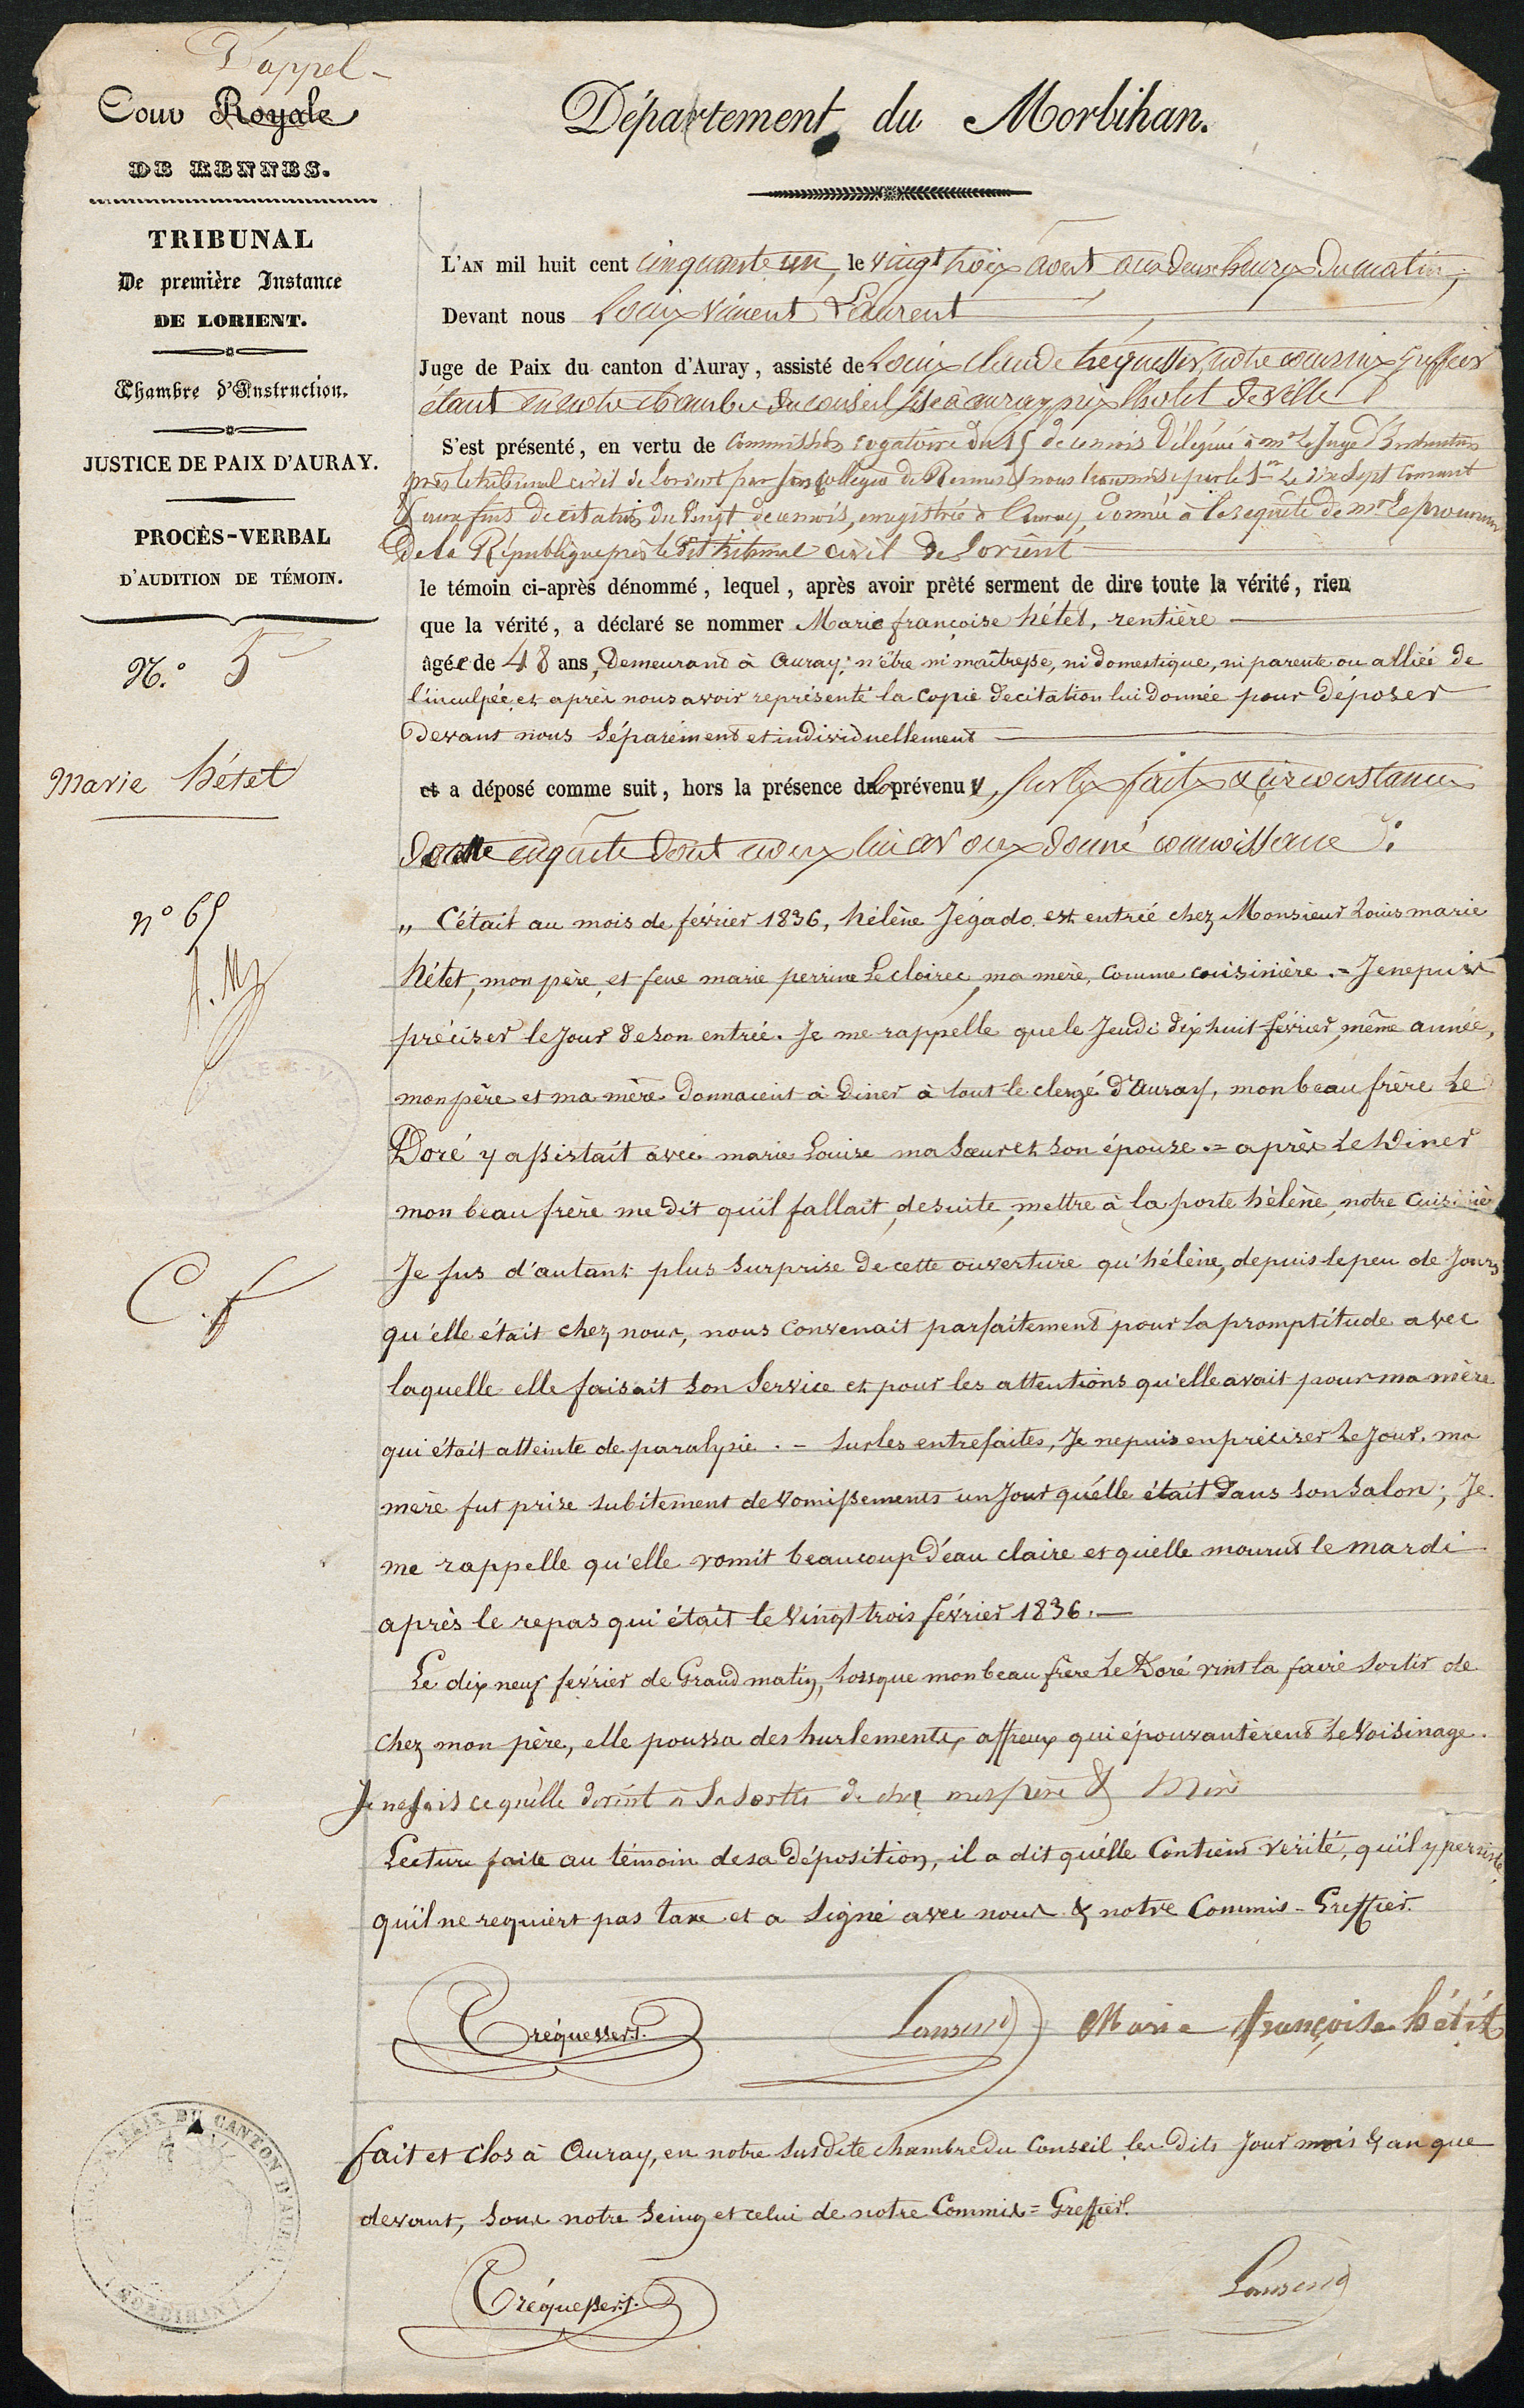 D'appel -
Cour Royale
DE RENNES.
TRIBUNAL
De première Instance
DE LORIENT.
Chambre d'Instruction.
JUSTICE DE PAIX D'AURAY.
PROCÈS-VERBAL
D'AUDITION DE TÉMOIN.
N.° 5
Marie hétet
n° 65
C. f
Département du Morbihan.
L'AN mil huit cent cinquante un, le vingt trois août aux deux heures du matin,
Devant nous Louis Vincent Laurent
Juge de Paix du canton d'Auray, assisté de Louis Claude Tréquesser, notre commis greffier
étant en notre chambre du conseil sise à auray près l'hotel de ville
S'est présenté, en vertu de Commission rogatoire du 15 de ce mois délégué à mr Le Juge d'Instruction
près le tribunal civil de Lorient par son collègue de Rennes & nous transmise par le 1er Le dix sept Courant
& aux fins de citation du vingt de ce mois, enregistrée à Auray, donnée à la requête de mr Le procureur
De la République près le dit tribunal civil de Lorient
le témoin ci-après dénommé, lequel, après avoir prêté serment de dire toute la vérité, rien
que la vérité, a déclaré se nommer Marie françoise hétet, rentière
âgée de 48 ans, Demeurant à Auray; n'être ni maîtresse, ni domestique, ni parente ou alliée de
l'inculpée, et après nous avoir représenté la copie de citation lui donnée pour déposer
Devant nous Séparément et individuellement
et a déposé comme suit, hors la présence de la prévenue, sur les faits & circonstances
de cette enquête dont nous lui avons donné connoissance :
„ C'était au mois de février 1836, hélène Jégado est entrée chez Monsieur Louis marie
hétet, mon père, et feue marie perrine Le cloirec, ma mère, comme cuisinière. = Je ne puis
préciser le Jour de son entrée. Je me rappelle que le Jeudi dix huit février, même année,
mon père et ma mère donnaient à diner à tout le clergé d'Auray, mon beau frère Le
Doré y assistait avec marie Louise ma Sœur et son épouse. = après Le Diner
mon beau frère me dit qu'il fallait, de suite, mettre à la porte hélène, notre cuisinière
Je fus d'autant plus Surprise de cette ouverture qu'hélène, depuis le peu de Jours
qu'elle était chez nous, nous Convenait parfaitement pour la promptitude avec
laquelle elle faisait Son Service et pour les attentions qu'elle avait pour ma mère
qui était atteinte de paralysie. - Sur les entrefaites, Je ne puis en préciser Le Jour, ma
mère fut prise subitement de vomissements un Jour qu'elle était dans son salon; Je
me rappelle qu'elle vomit beaucoup d'eau claire et qu'elle mourut le mardi
après le repas qui était le vingt trois février 1836. —
Le dix neuf février de Grand matin, Lorsque mon beau frère Le Doré vint la faire sortir de
chez mon père, elle poussa des hurlements affreux qui épouvantèrent Le voisinage.
Je ne sais ce qu'elle devint à Sa Sortie de chez mes père & Mère
Lecture faite au témoin de sa déposition, il a dit qu'elle Contient vérité, qu'il y persiste,
qu'il ne requiert pas taxe et a Signé avec nous & notre Commis - Greffier.
Tréquesser
Laurent
Marie françoise hétet
fait et clos à Auray, en notre susdite chambre du Conseil les dits Jour mois & an que
devant, sous notre Seing et celui de notre Commis = Greffier.
Tréquesser
Laurent